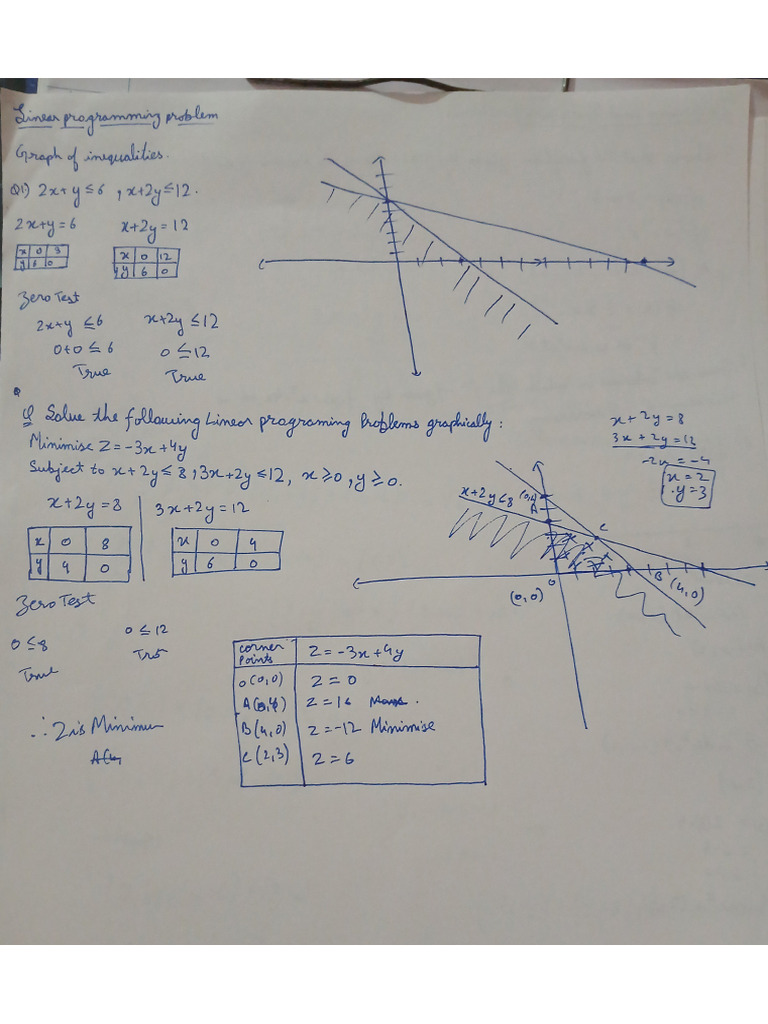 Linear programming problem
Graph of inequalities.
Q1) 2x+y ≤ 6 , x+2y ≤ 12.
2x+y = 6 x+2y = 12
x 0 3
y 6 0
x 0 12
y 6 0
Zero Test
2x+y ≤ 6 x+2y ≤ 12
0+0 ≤ 6 0 ≤ 12
True True
Q Solve the following Linear programing Problems graphically :
Minimise Z = -3x+4y
Subject to x+2y ≤ 8 , 3x+2y ≤ 12, x ≥ 0 , y ≥ 0.
x+2y = 8 3x+2y = 12
x 0 8
y 4 0
x 0 4
y 6 0
Zero Test
0 ≤ 8 0 ≤ 12
True
x + 2y = 8
3x + 2y = 12
-2x = -4
x = 2
y = 3
x+2y ≤ 8
A
C
B (4,0)
O
(0,0)
corner Points Z = -3x+4y
O(0,0) Z = 0
A(0,4) Z = 16
B(4,0) Z = -12 Minimise
C(2,3) Z = 6
∴ Z is Minimum